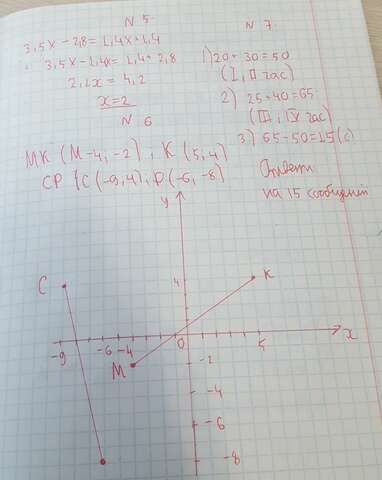 N 5
3,5x - 2,8 = 1,4x + 1,4
3,5x - 1,4x = 1,4 + 2,8
2,1x = 4,2
x = 2
N 6
MK (M-4,-2), K (5,4)
CP (C (-9,4), D (-6,-8)
N 7
1) 20 + 30 = 50
(I, II час)
2) 25 + 40 = 65
(III, IV час)
3) 65 - 50 = 15 (с)
Ответ:
на 15 сообщений
y
C
4
K
-9
-6
-4
0
5
x
M
-2
-4
-6
-8